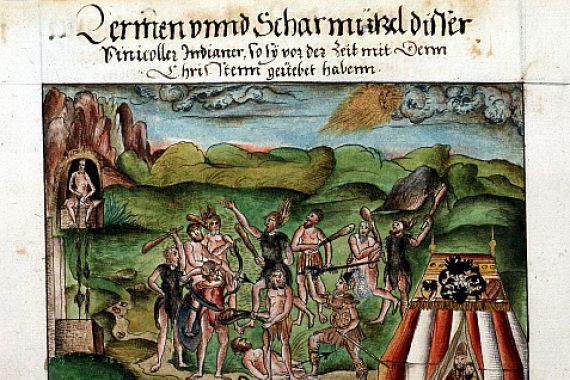 Lermen vnnd Scharmützel disser
Vinicoller Indianer, so sÿ vor der Zeit mit Denn
Christenn geüebet habenn.